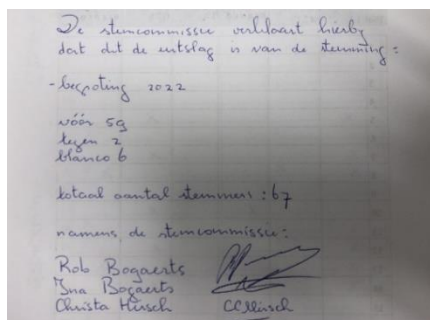 De stemcommissie verklaart hierbij
dat dit de uitslag is van de stemming:
- begroting 2022
vóór 59
tegen 2
blanco 6
totaal aantal stemmers: 67
namens de stemcommissie:
Rob Bogaerts
Ina Bogaerts
Christa Hirsch CCHirsch